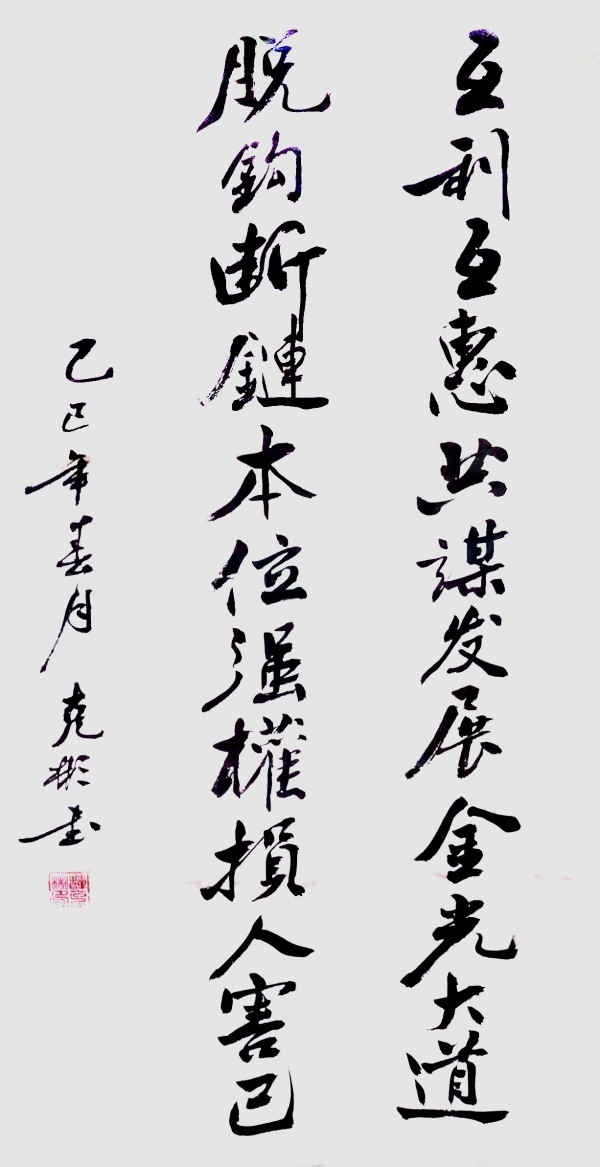 互利互惠共謀发展金光大道
脱鈎断鏈本位强權損人害己
乙巳年春月克彬书